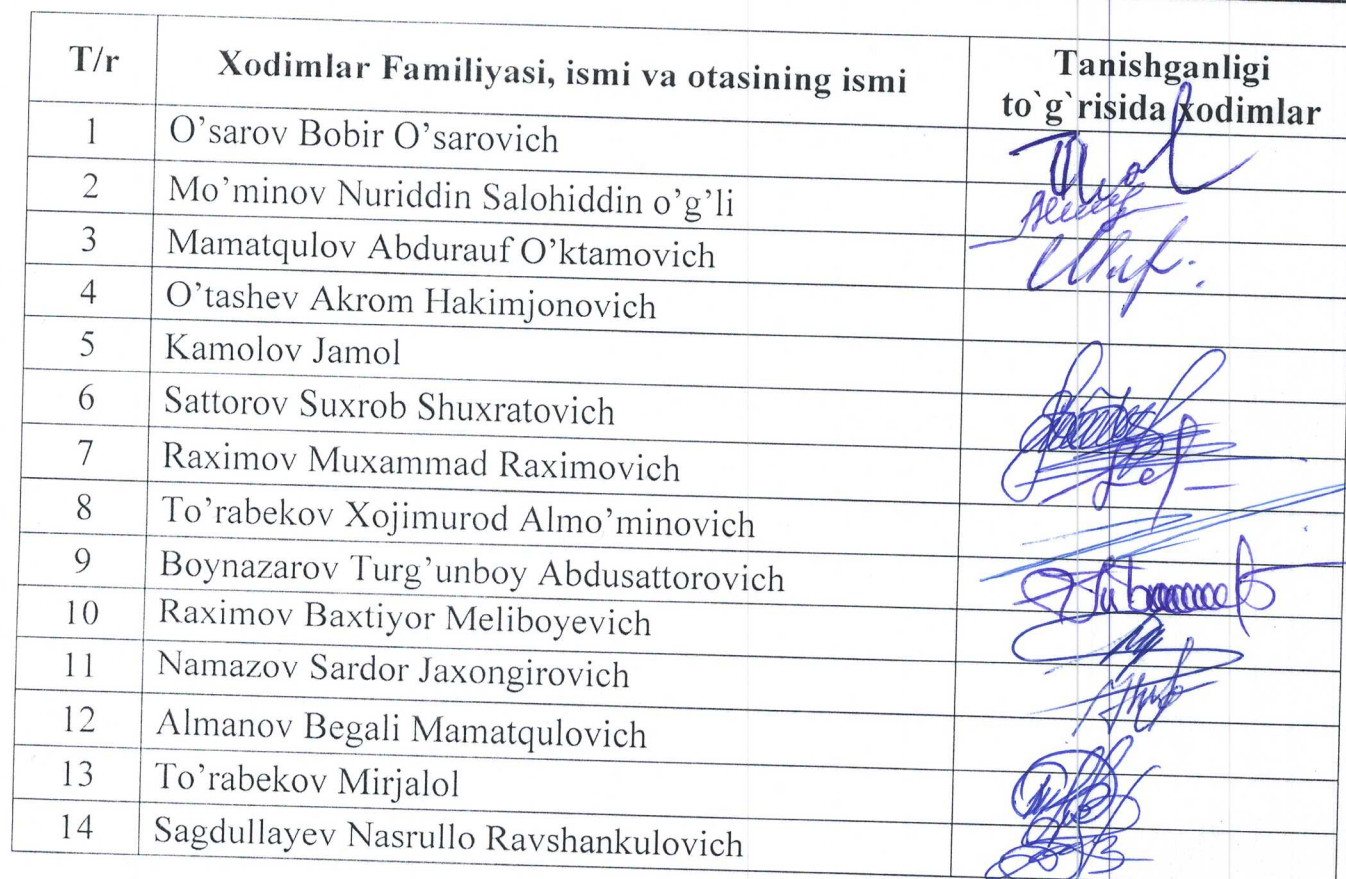 T/r Xodimlar Familiyasi, ismi va otasining ismi Tanishganligi
to`g`risida xodimlar
1 O’sarov Bobir O’sarovich
2 Mo’minov Nuriddin Salohiddin o’g’li
3 Mamatqulov Abdurauf O’ktamovich
4 O’tashev Akrom Hakimjonovich
5 Kamolov Jamol
6 Sattorov Suxrob Shuxratovich
7 Raximov Muxammad Raximovich
8 To’rabekov Xojimurod Almo’minovich
9 Boynazarov Turg’unboy Abdusattorovich
10 Raximov Baxtiyor Meliboyevich
11 Namazov Sardor Jaxongirovich
12 Almanov Begali Mamatqulovich
13 To’rabekov Mirjalol
14 Sagdullayev Nasrullo Ravshankulovich